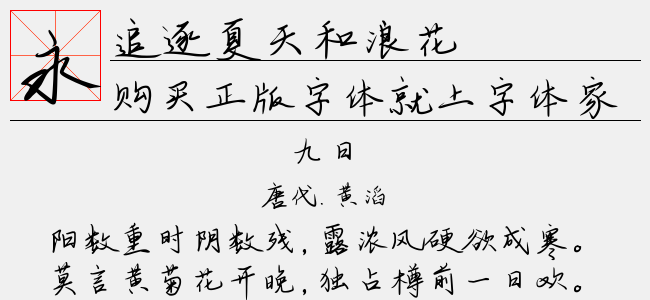 永
追逐夏天和浪花
购买正版字体就上字体家
九日
唐代.黄滔
阳数重时阴数残，露浓风硬欲成寒。
莫言黄菊花开晚，独占樽前一日欢。